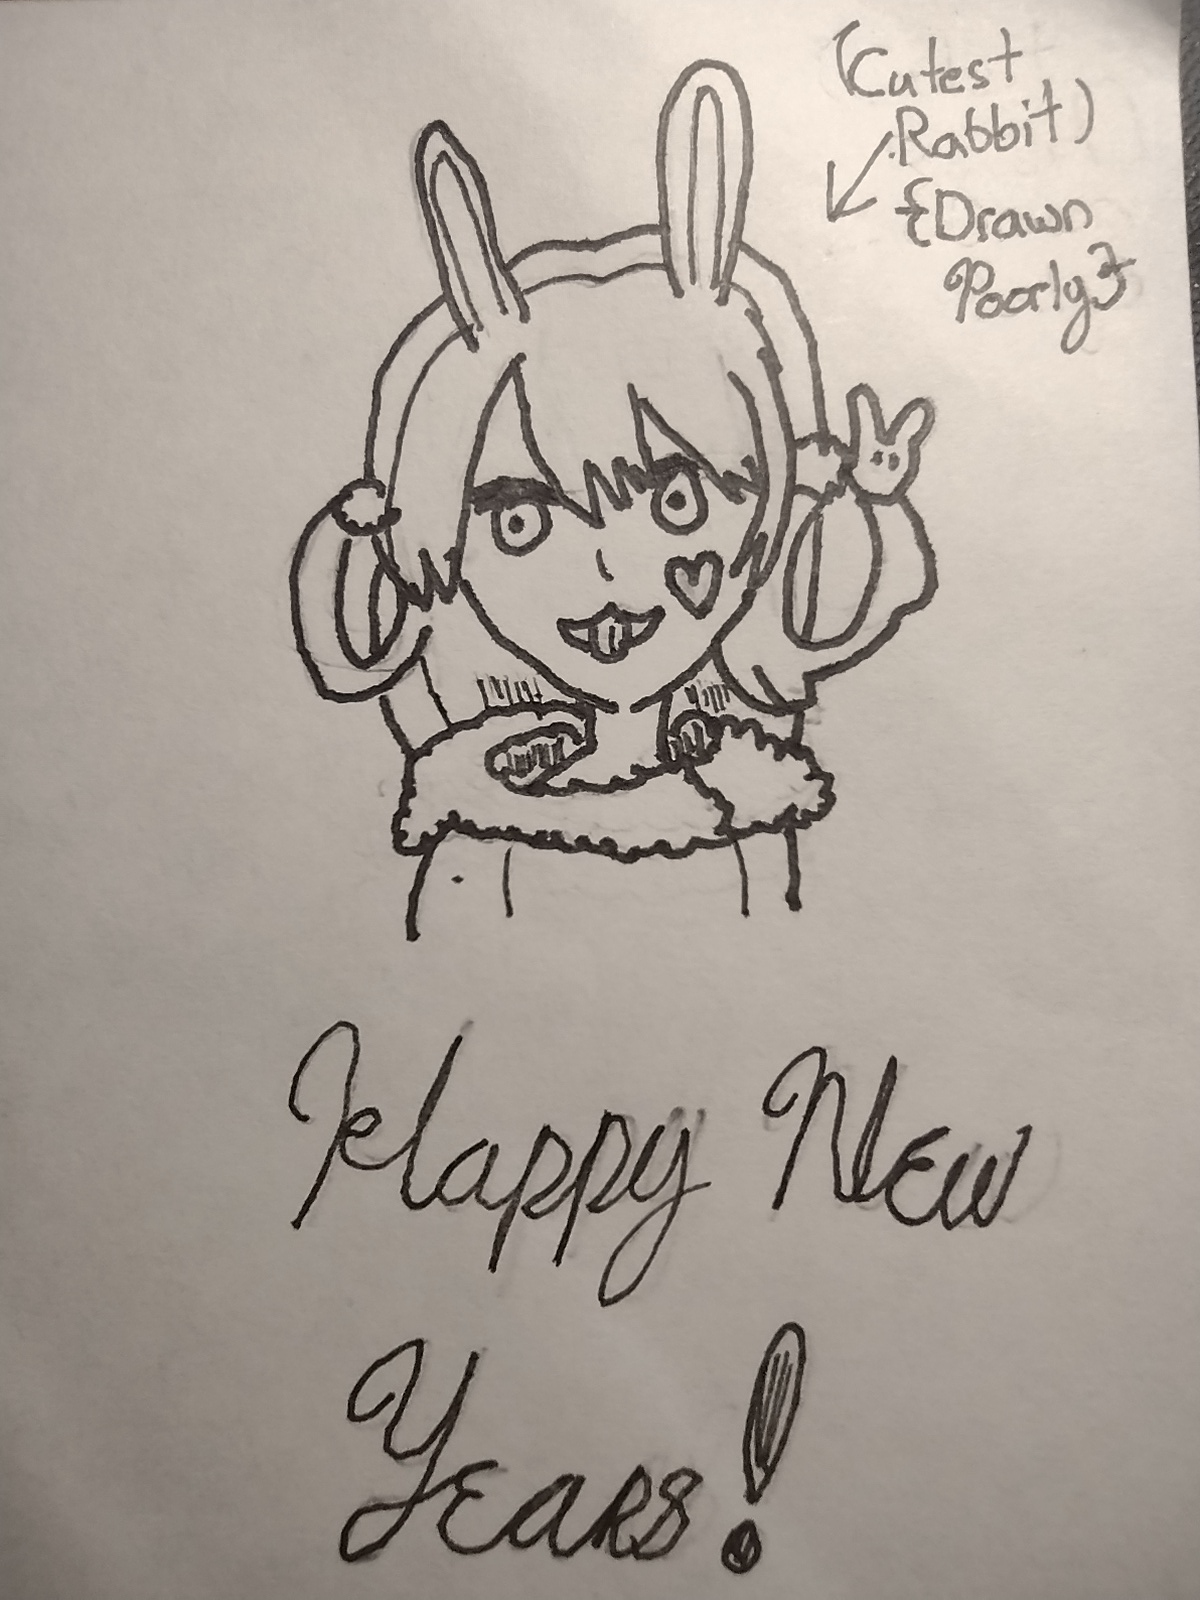 (Cutest
Rabbit)
{Drawn
Poorly}
Happy New
Years!